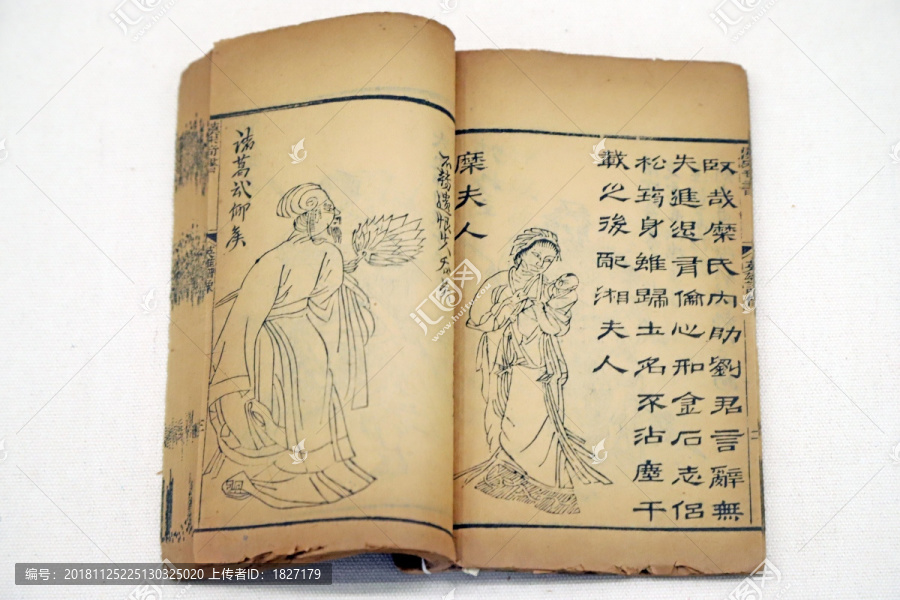 臤哉糜氏内助劉君言辭無
失進退胥倫心和金石志侶
松筠身雖歸土名不沾塵千
載之後配湘夫人
糜夫人
諸葛武鄉矦
汇图网
编号:20181125225130325020 上传者ID:1827179